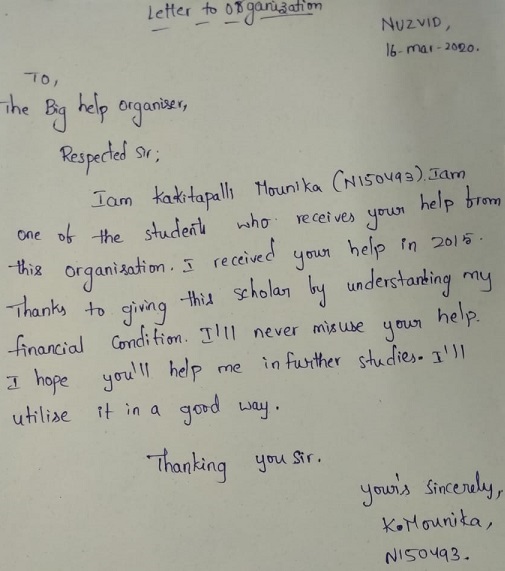 Letter to Organization
NUZVID,
16-mar-2020.
TO,
The Big help organiser,
Respected Sir;
Iam Kakitapalli Mounika (N150493). Iam
one of the student who receives your help from
this organisation. I received your help in 2015.
Thanks to giving this scholar by understanting my
financial Condition. I'll never misuse your help.
I hope you'll help me in further studies. I'll
utilise it in a good way.
Thanking you Sir.
your's Sincerely,
K.Mounika,
N150493.